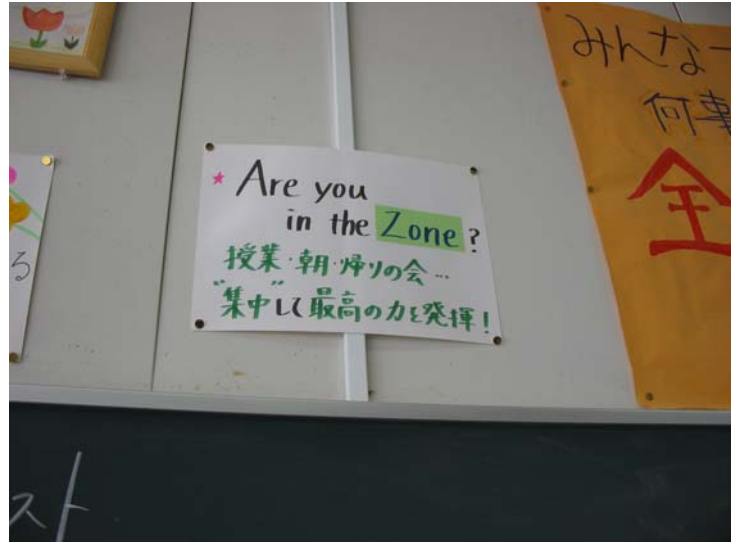 Are you
in the Zone?
授業・朝・帰りの会…
"集中"して最高の力を発揮!
みんな一
何事
全
る
スト